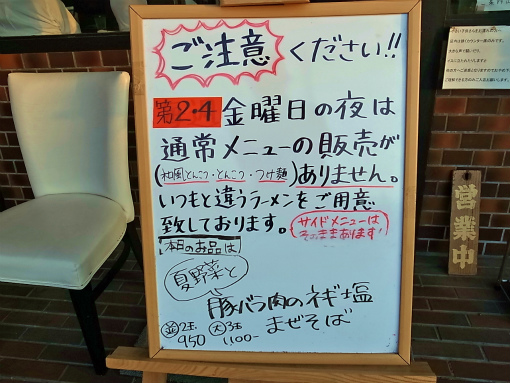 ご注意ください!!
第2・4金曜日の夜は
通常メニューの販売が
(和風とんこつ・とんこつ・つけ麺)ありません。
いつもと違うラーメンをご用意
致しております。
サイドメニューは
そのままあります!
本日のお品は
夏野菜と
豚バラ肉のネギ塩
まぜそば
並2玉 大3玉
950 1100-
営業中